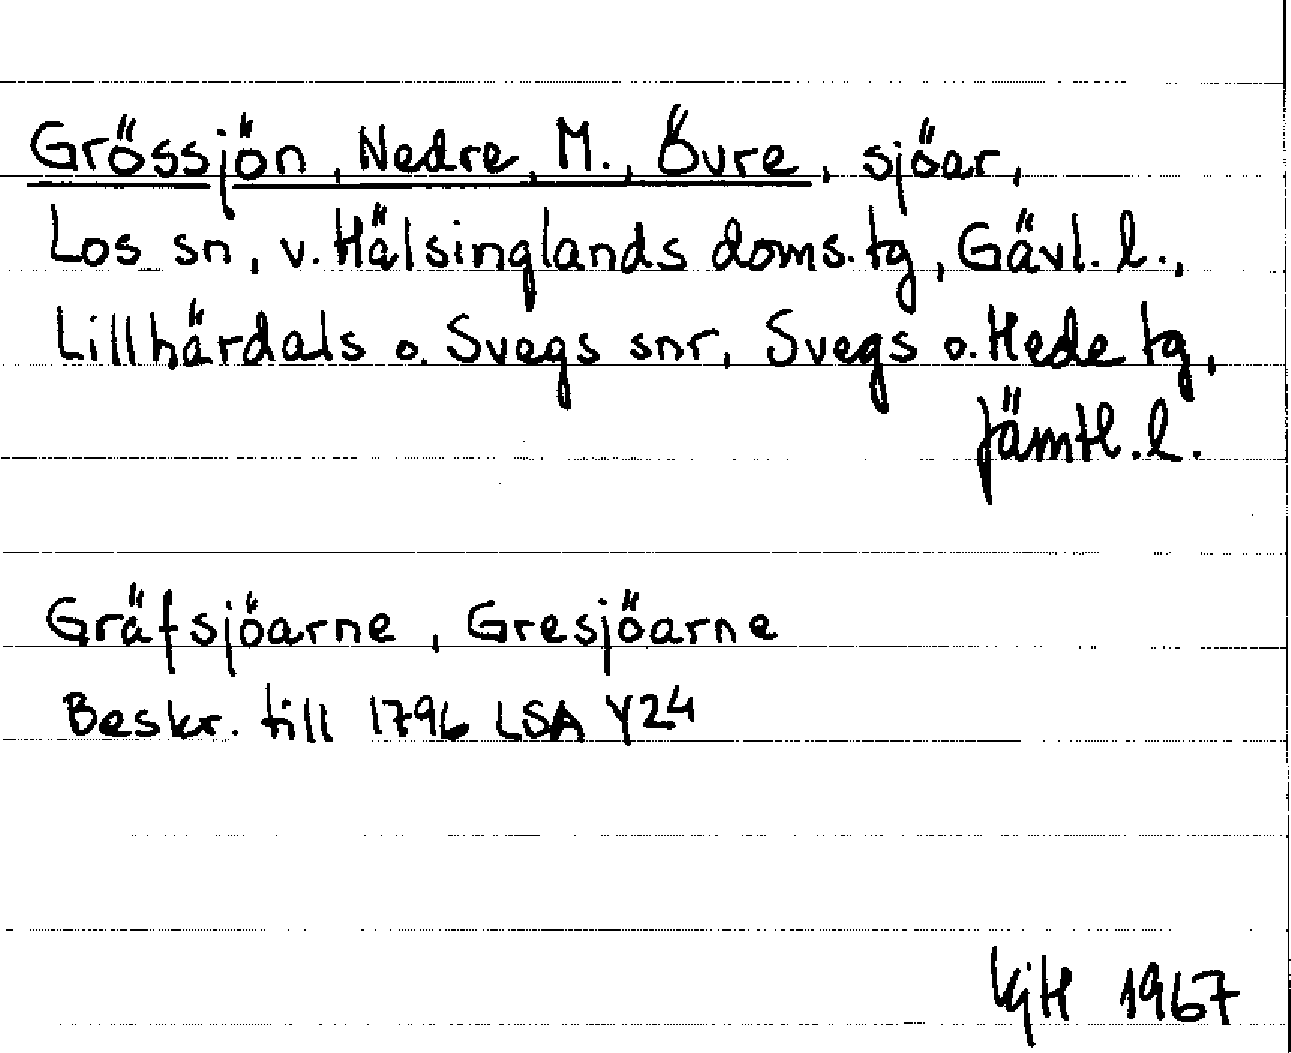 Grössjön, Nedre, M., Övre, sjöar,
Los sn, v. Hälsinglands doms. tg, Gävl. l.,
Lillhärdals o. Svegs snr, Svegs o. Hede tg,
Jämtl. l.
Gräfsjöarne, Gresjöarne
Beskr. till 1796 LSA Y24
KjH 1967